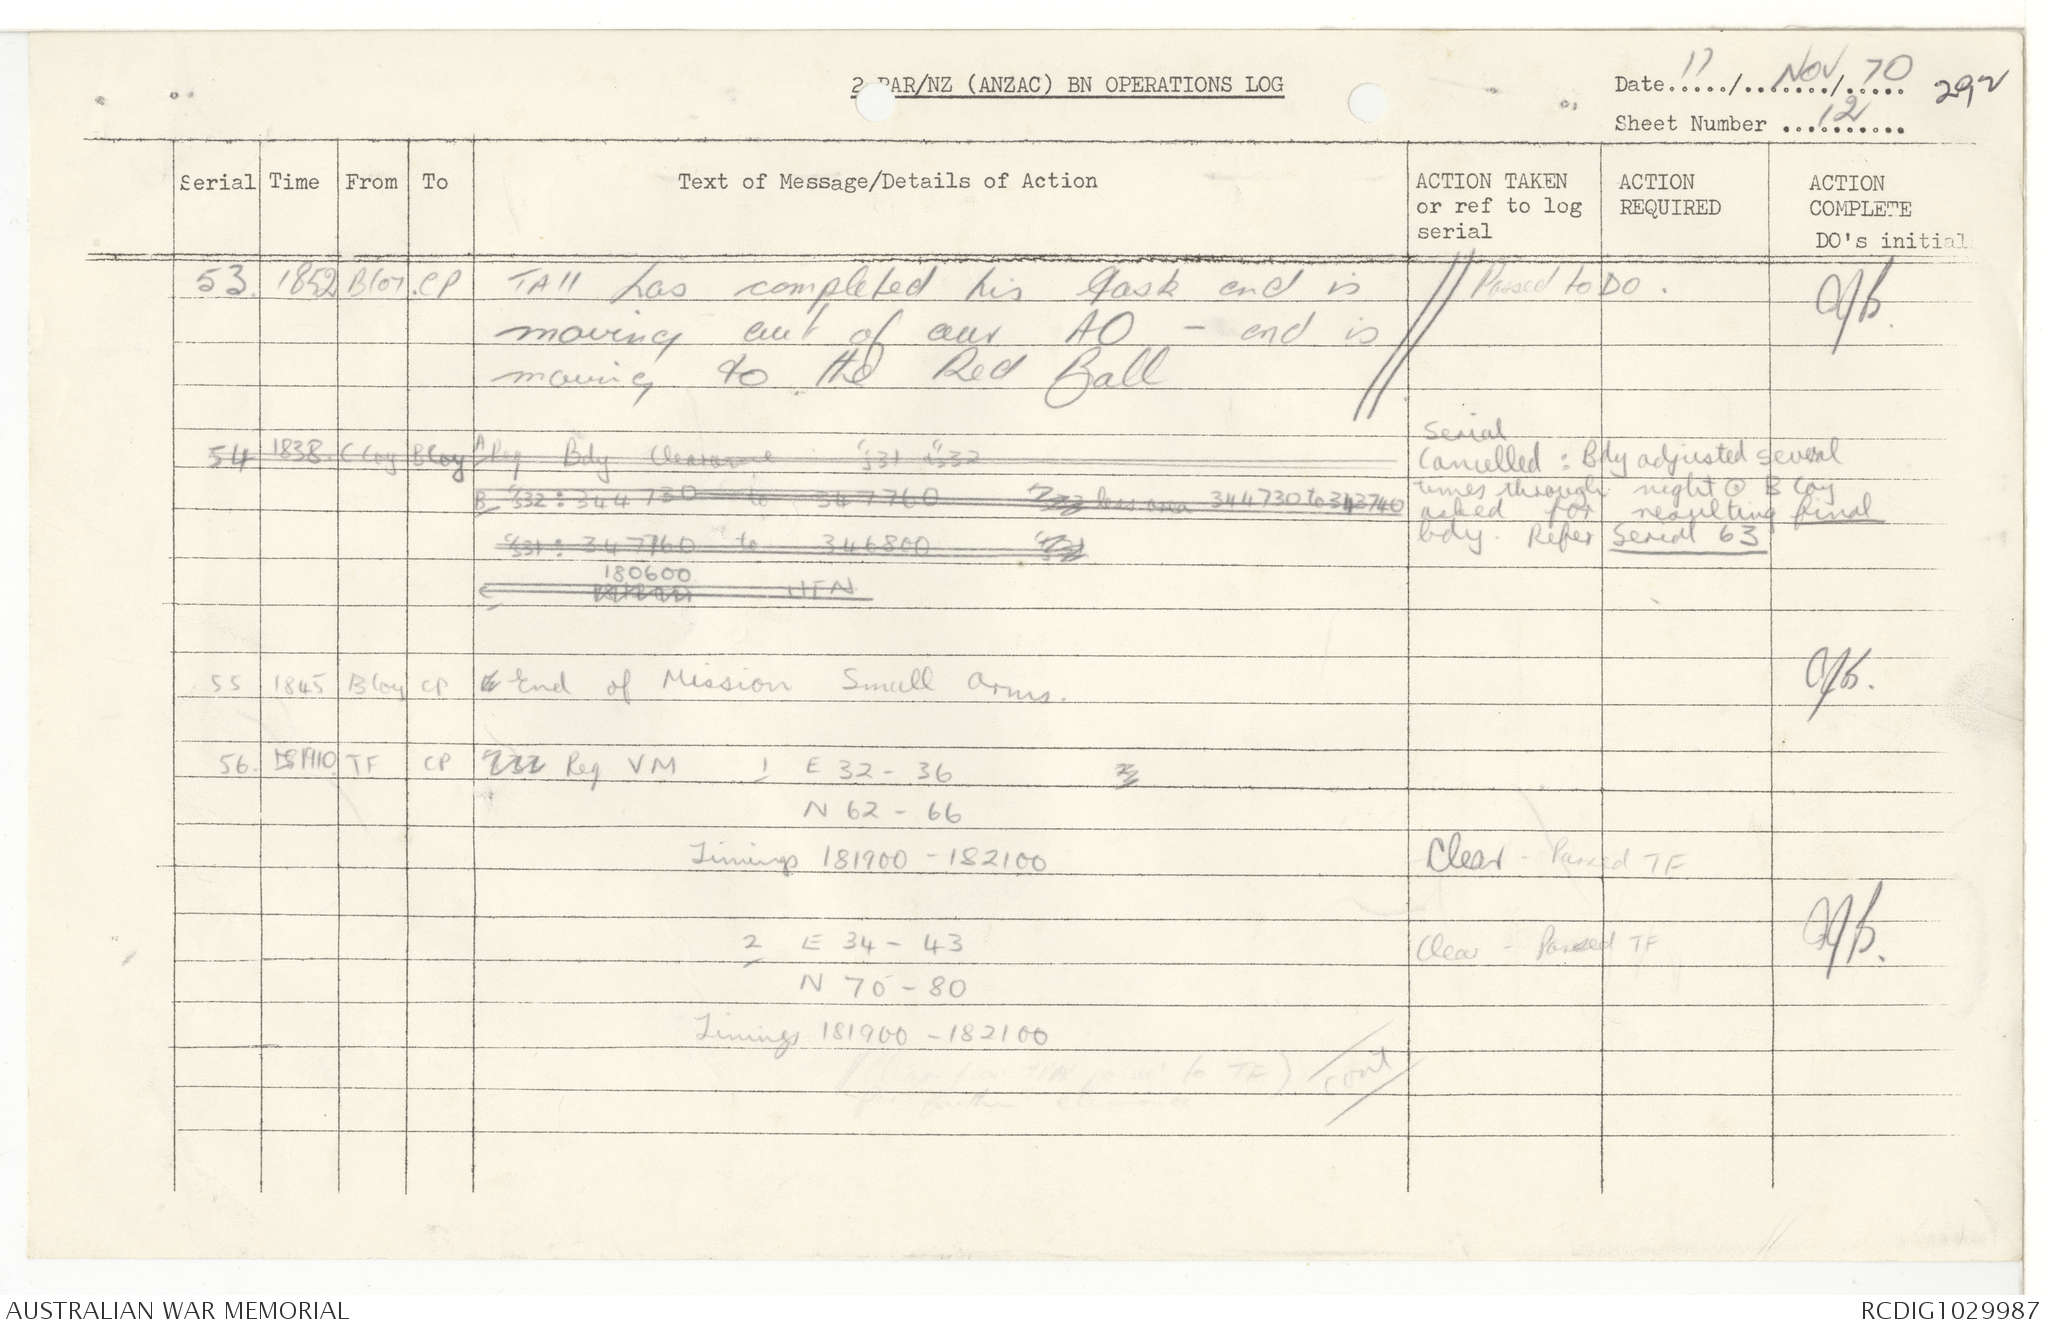 2 RAR/NZ (ANZAC) BN OPERATIONS LOG
Date 17/Nov/70
292
Sheet Number 12
Serial Time From To Text of Message/Details of Action ACTION TAKEN or ref to log serial ACTION REQUIRED ACTION COMPLETE DO's initial
53. 1852 BCoy. CP TA11 has completed his task and is Passed to DO.
moving out of our AO - and is
moving to the Red Ball
Serial
54 1838. C Coy B Coy A Req Bdy Clearance 531 532 Cancelled: Bdy adjusted several
B 532: 344730 to 347760 less area 344730 to 343740 times through night @ B Coy
asked for resulting final
531: 347760 to 346800 bdy. Refer Serial 63
180600
C UFN
55 1845 B Coy CP End of Mission Small Arms.
56. 1910 TF CP Req VM 1 E 32 - 36
N 62 - 66
Timings 181900 - 182100 Clear - Passed TF
2 E 34 - 43 Clear - Passed TF
N 75 - 80
Timings 181900 - 182100
to TF) cont
AUSTRALIAN WAR MEMORIAL RCDIG1029987